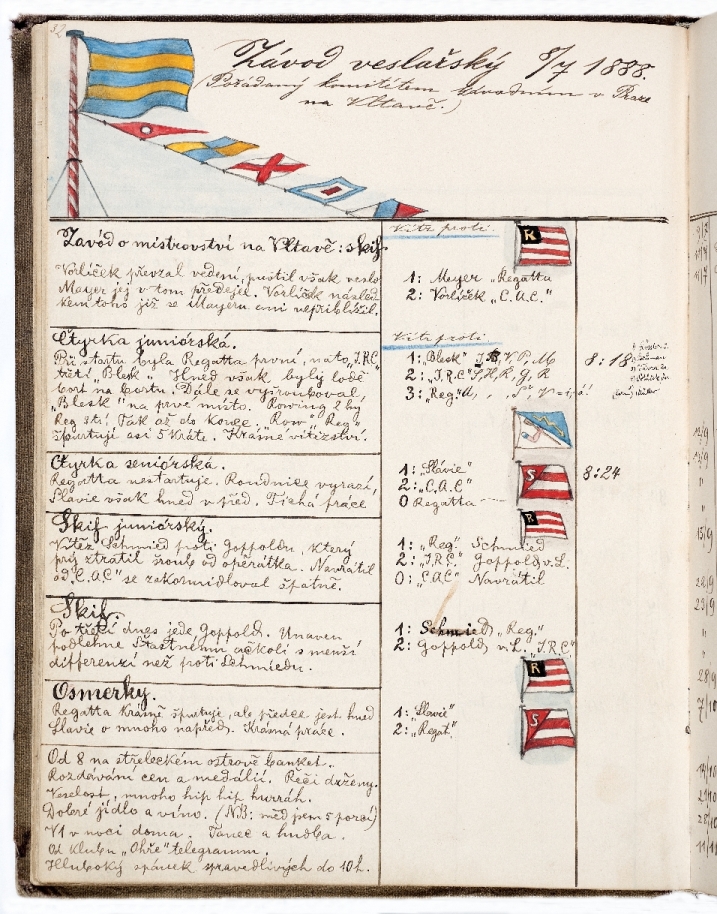 32
Závod veslařský 8/7 1888.
(Pořádaný komitétem závodním v Praze
na Vltavě.)
Závod o mistrovství na Vltavě: skif
Vorlíček převzal vedení, pustil však veslo
Mayer jej v tom předejel. Vorlíček násled-
kem toho již se Mayeru ani nepřiblížil.
Vítz proti.
R
1: Mayer „Regatta
2: Vorlíček „C.A.C."
Čtyrka juniórská.
Při startu byla Regatta první, nato „I.R.C"
třetí „Blesk". Hned však byly lodě
bort na bortu. Dále se vyšrouboval
„Blesk" na prvé místo. Rowing 2hý
Reg 3tí. Tak až do konce, „Row" „Reg"
špurtuje asi 5 kráte. Krásné vítězství.
Vítz proti
1: „Blesk"
2: „I.R.C" H, R, G, R
3: „Reg"
8:18
Čtyrka seniórská.
Regatta nestartuje. Roudnice vyrazí,
Slavie však hned v před. Tichá práce
1: „Slavie"
2: „C.A.C"
0 Regatta
S
8:24
Skif juniórský.
Vítěz Schmied proti Goppoldu, který
prý ztratil šroub od opěrátka. Navrátil
od „C.A.C" se zakormidloval špatně.
R
1: „Reg" Schmied
2: „I.R.C" Goppold v. L.
0: „C.A.C" Navrátil
Skif.
Po třetí dnes jede Goppold. Unaven
podlehne Šťastnému ačkoli s menší
differenzí než proti Schmiedu.
1: Schmied „Reg."
2: Goppold v. L. „I.R.C"
R
Osmerky.
Regatta krásně špurtuje, ale předce jest hned
Slavie o mnoho napřed. Krásná práce.
1: „Slavie"
2: „Regat."
S
Od 8 na střeleckém ostrově banket.
Rozdávání cen a medálií. Řeči drženy.
Veselost, mnoho hip hip hurráh.
Dobré jídlo a víno. (NB: měl jsem 5 porcí)
V 1 v noci doma. Tanec a hudba.
Od klubu „Ohře" telegramm.
Hluboký spánek spravedlivých do 10 h.